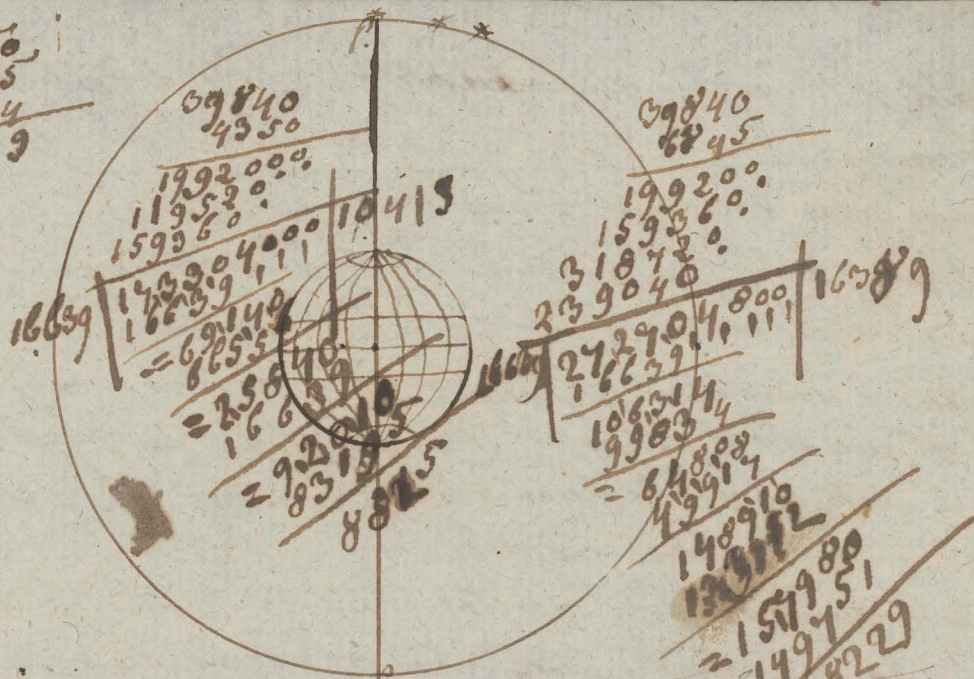 0
5
4
9
39840
4350
1992000
119520
159360
16639 173304000 10415
16639
= 69140
66556
= 25840
16639
= 92010
83195
39840
6845
199200
159360
318720
239040
16639 272704800 16389
16639
106314
99834
= 64808
49917
148910
133112
= 157980
149751
8229